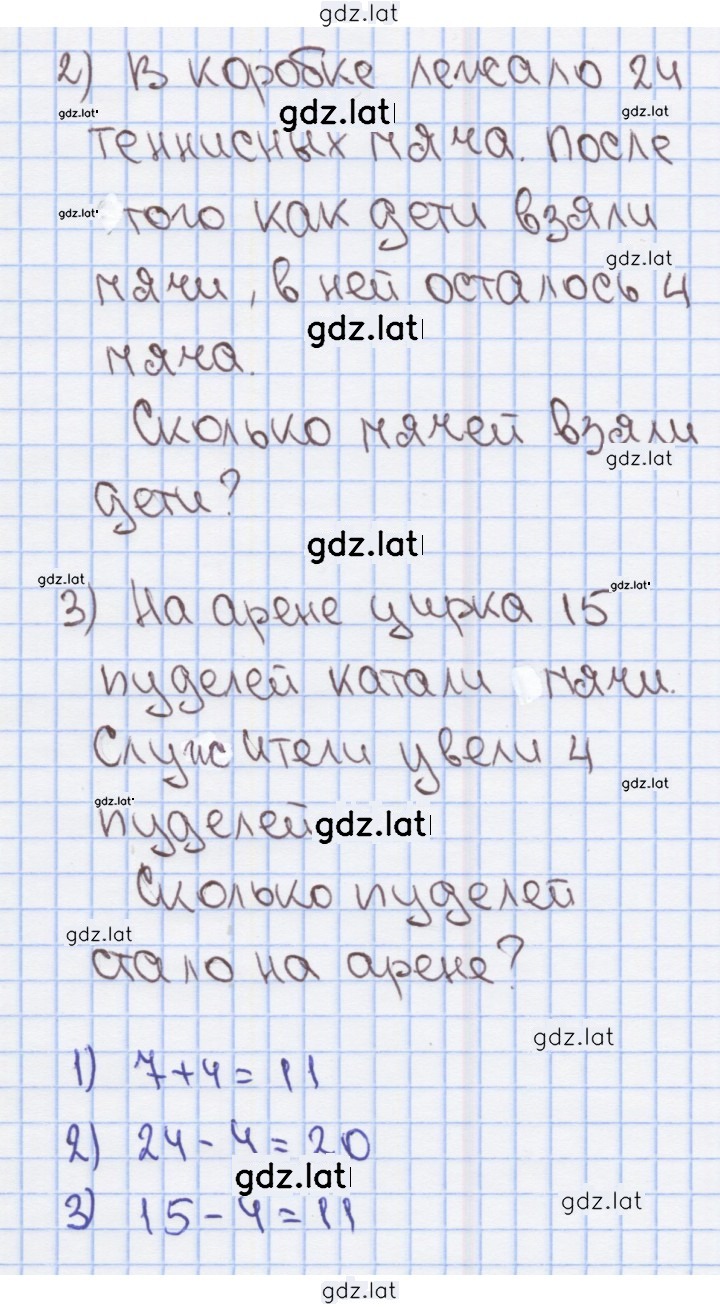 gdz.lat
2) В коробке лежало 24
gdz.lat gdz.lat gdz.lat
теннисных мяча. После
gdz.lat того как дети взяли
gdz.lat
мячи, в ней осталось 4
gdz.lat
мяча.
Сколько мячей взяли
gdz.lat
дети?
gdz.lat
gdz.lat gdz.lat
3) На арене цирка 15
пуделей катали мячи.
Служители увели 4
gdz.lat
gdz.lat
пуделей gdz.lat
Сколько пуделей
gdz.lat
стало на арене?
gdz.lat
1) 7+4=11
2) 24-4=20
gdz.lat
gdz.lat
3) 15-4=11
gdz.lat